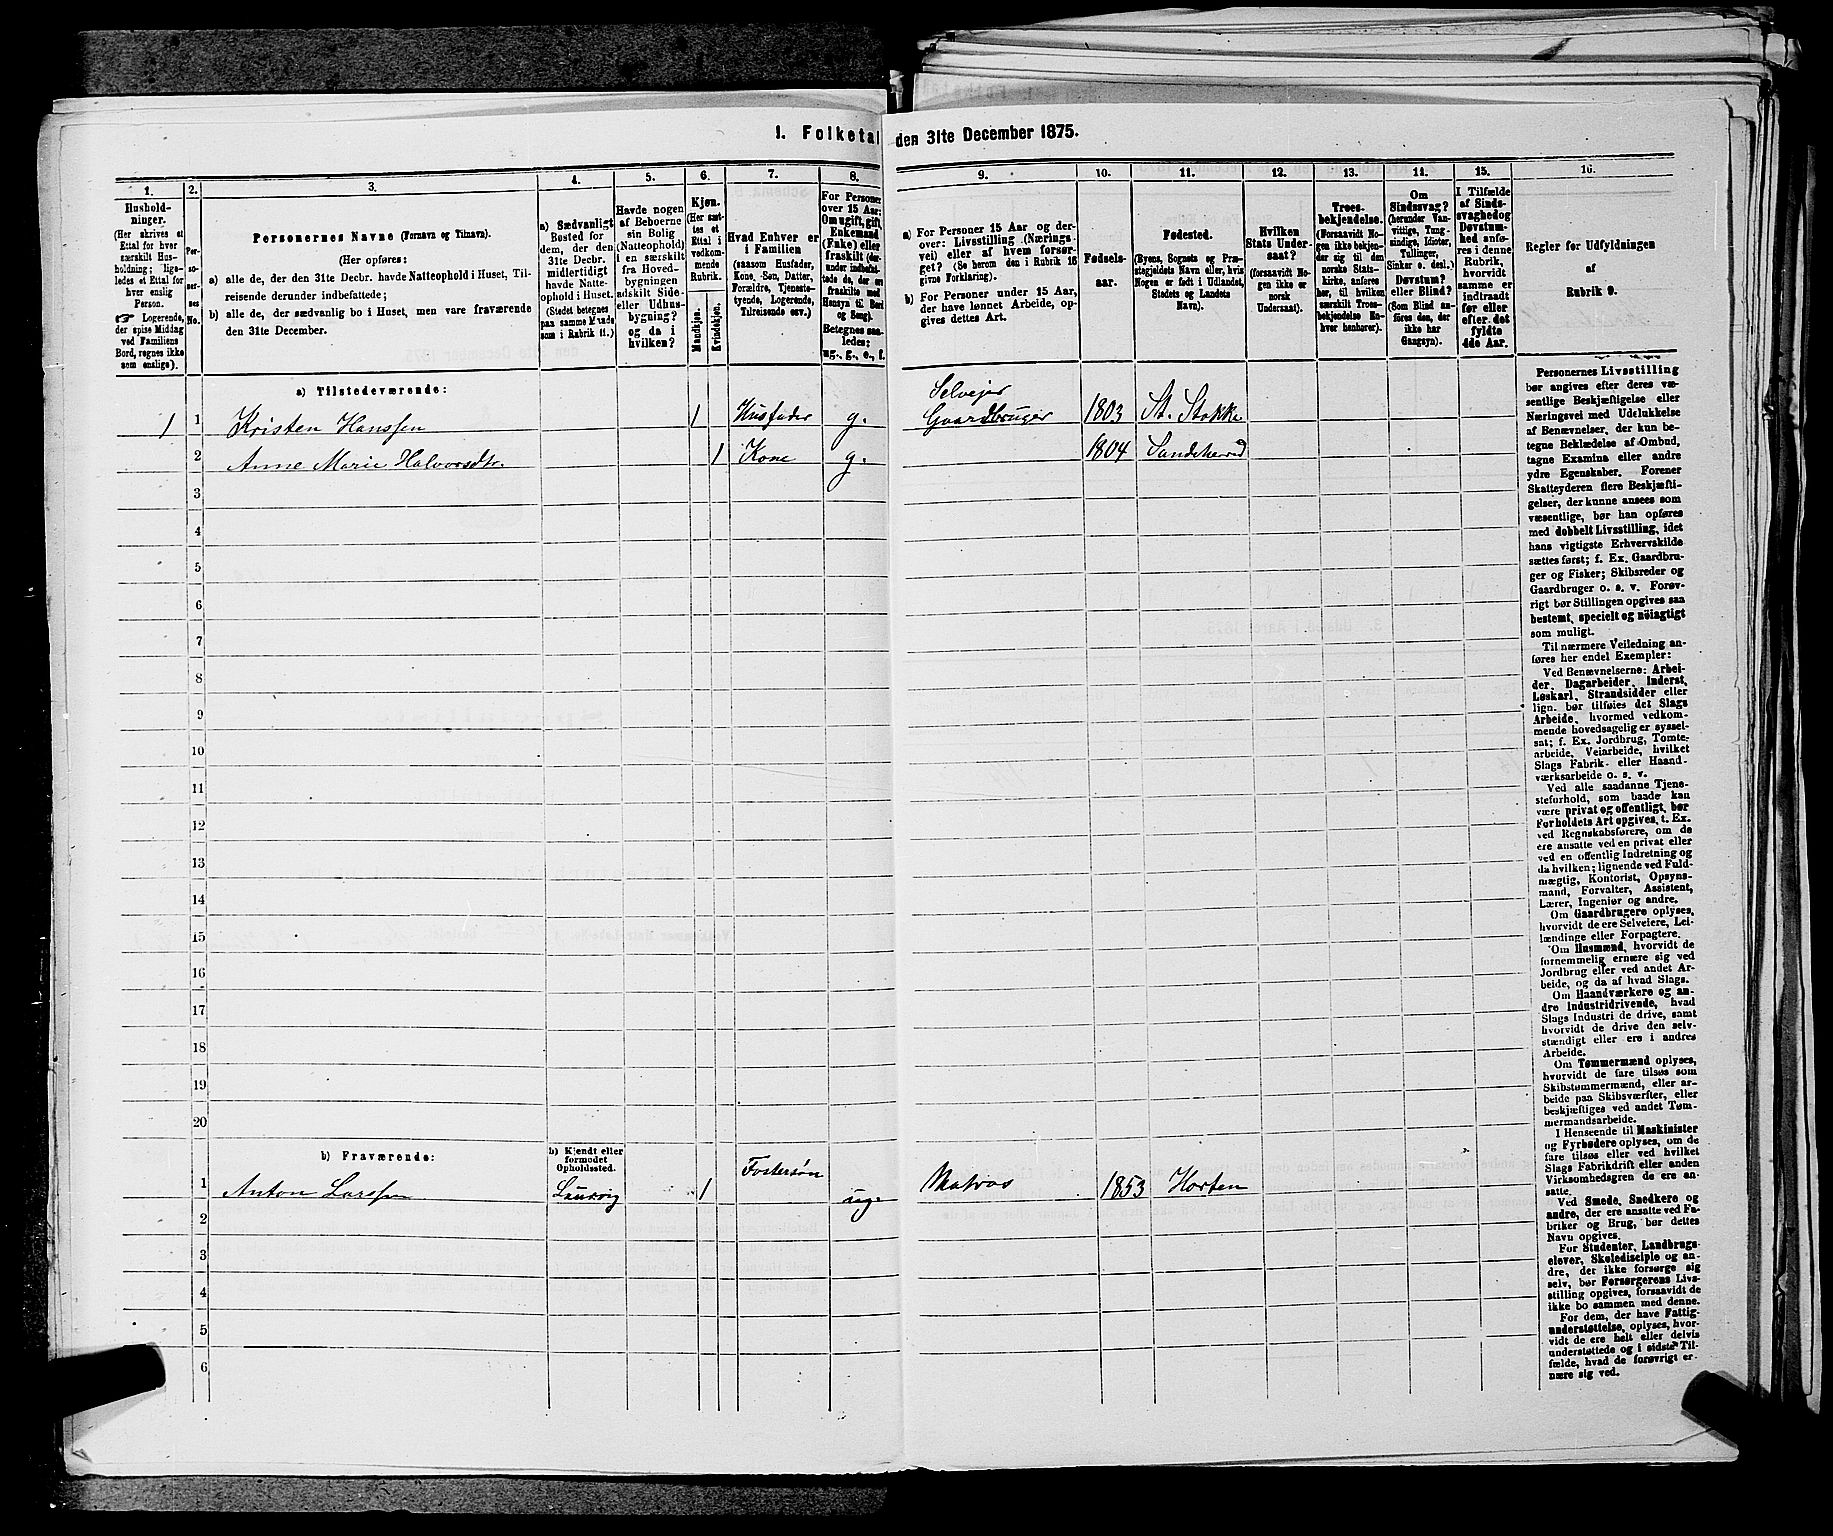 1. Folketal den 31te December 1875.
1.
Hushold-
ninger.
(Her skrives et
Ettal for hver
særskilt Hus-
holdning; lige-
ledes et Ettal for
hver enslig
Person.
Logerende,
der spise Middag
ved Familiens
Bord, regnes ikke
som enslige).
2.
Per-
so-
ner-
nes
No.
3.
Personernes Navne (Fornavn og Tilnavn).
(Her opføres:
a) alle de, der den 31te Decbr. havde Natteophold i Huset, Til-
reisende derunder indbefattede;
b) alle de, der sædvanlig bo i Huset, men vare fraværende
den 31te December.
4.
a) Sædvanligt
Bosted for
dem, der den
31te Decbr.
midlertidigt
havde Natte-
ophold i Huset.
(Stedet betegnes
paa samme Maade
som i Rubrik 11.)
5.
Havde nogen
af Beboerne
sin Bolig
(Natteophold)
i en særskilt
fra Hoved-
bygningen
adskilt Side-
eller Udhus-
bygning?
og da i
hvilken?
6.
Kjøn.
(Her sæt-
tes et
Ettal i
vedkom-
mende
Rubrik.
Mandkjøn.
Kvindekjøn.
7.
Hvad Enhver er
i Familien
(saasom Husfader,
Kone, Søn, Datter,
Forældre, Tjeneste-
tyende, Logerende,
Tilreisende osv.)
8.
For Personer
over 15 Aar:
Om ugift, gift,
Enkemand
(Enke) eller
fraskilt
Betegnes saa-
ledes:
ug., g., e., f.
9.
a) For Personer 15 Aar og der-
over: Livsstilling (Nærings-
vei) eller af hvem forsør-
get? (Se herom den i Rubrik 16
givne Forklaring).
b) For Personer under 15 Aar,
der have lønnet Arbeide, op-
gives dettes Art.
10.
Fødsels-
aar.
11.
Fødested.
(Byens, Sognets og Præ-
stegjeldets Navn eller, hvis
Nogen er født i Udlandet,
Stedets og Landets
Navn).
12.
Hvilken
Stats Under-
saat?
(forsaavidt No-
gen ikke er
norsk
Undersaat).
13.
Troes-
bekjendelse.
(Forsaavidt No-
gen ikke bekjen-
der sig til den
norske Stats-
kirke, anføres
her, til hvilken
særskilt Troes-
bekjendelse En-
hver henhører).
14.
Om
Sindssvag?
(herunder Van-
vittige, Tung-
sindige, Idioter,
Tullinger,
Sinker o. desl.)
Døvstum?
eller Blind?
(Som Blind an-
føres den, der
ikke har
Gangsyn).
15.
I Tilfælde
af Sinds-
svaghed og
Døvstum-
hed anfø-
res i denne
Rubrik,
hvorvidt
samme er
indtraadt
før eller
efter det
fyldte
4de Aar.
16.
Regler for Udfyldningen
af
Rubrik 9.
a) Tilstedeværende:
1 1 Kristen Hanssen 1 Husfader g. Selveier Gaardbruger 1803 St. Stokke
2 Anne Marie Halvorsdtr. 1 Kone g. 1804 Sandeherred
3
4
5
6
7
8
9
10
11
12
13
14
15
16
17
18
19
20
b) Fraværende:
b) Kjendt eller
formodet
Opholdssted.
1 Anton Larssen Laurvig 1 Fostersøn ug. Matros 1853 Horten
2
3
4
5
6
Personernes Livsstilling
bør angives efter deres væ-
sentlige Beskjæftigelse eller
Næringsvei med Udelukkelse
af Benævnelser, der kun be-
tegne Beklædelse af Ombud,
tagne Examina eller andre
ydre Egenskaber. Forener
Skatteyderen flere Beskjæfti-
gelser, der kunne ansees som
væsentlige, bør han opføres
med dobbelt Livsstilling, idet
hans vigtigste Erhvervskilde
sættes først; f. Ex. Gaardbru-
ger og Fisker; Skibsreder og
Gaardbruger o. s. v. Forøv-
rigt bør Stillingen opgives saa
bestemt, specielt og nöiagtigt
som muligt.
Til nærmere Veiledning an-
føres her endel Exempler:
Ved Benævnelserne: Arbei-
der, Dagarbeider, Inderst,
Løskarl, Strandsidder eller
lign. bør tilføies det Slags
Arbeide, hvormed vedkom-
mende hovedsagelig er syssel-
sat; f. Ex. Jordbrug, Tomte-
arbeide, Veiarbeide, hvilket
Slags Fabrik- eller Haand-
værksarbeide o. s. v.
Ved alle saadanne Tjene-
steforhold, som baade kan
være privat og offentligt, bør
Forholdets Art opgives, t. Ex.
ved Regnskabsførere, om de
ere ansatte ved en privat eller
ved en offentlig Indretning og
da hvilken; lignende ved Fuld-
mægtig, Kontorist, Opsyns-
mand, Forvalter, Assistent,
Lærer, Ingeniør og andre.
Om Gaardbrugere oplyses,
hvorvidt de ere Selveiere, Lei-
lændinge eller Forpagtere.
Om Husmænd, hvorvidt de
fornemmelig ernære sig ved
Jordbrug eller ved andet Ar-
beide, og da af hvad Slags.
Om Haandværkere og an-
dre Industridrivende, hvad
Slags Industri de drive, samt
hvorvidt de drive den selv-
stændigt eller ere i andres
Arbeide.
Om Tømmermænd oplyses,
hvorvidt de fare tilsøs som
Skibstømmermænd, eller ar-
beide paa Skibsværfter, eller
beskjæftiges ved andet Tøm-
mermandsarbeide.
I Henseende til Maskinister
og Fyrbødere oplyses, om de
fare tilsøs eller ved hvilket
Slags Fabrikdrift eller anden
Virksomhedsgren de ere an-
satte.
Ved Smede, Snedkere og
andre, der ere ansatte ved Fa-
briker og Brug, bør dettes
Navn opgives.
For Studenter, Landbrugs-
elever, Skoledisciple og an-
dre, der ikke forsørge sig
selv, bør Forsørgerens Livs-
stilling opgives, forsaavidt de
ikke bo sammen med denne.
For dem, der have Fattig-
understøttelse, oplyses, hvor-
vidt de ere helt eller delvis
understøttede og i sidste Til-
fælde, hvad de forøvrigt er-
nære sig ved.